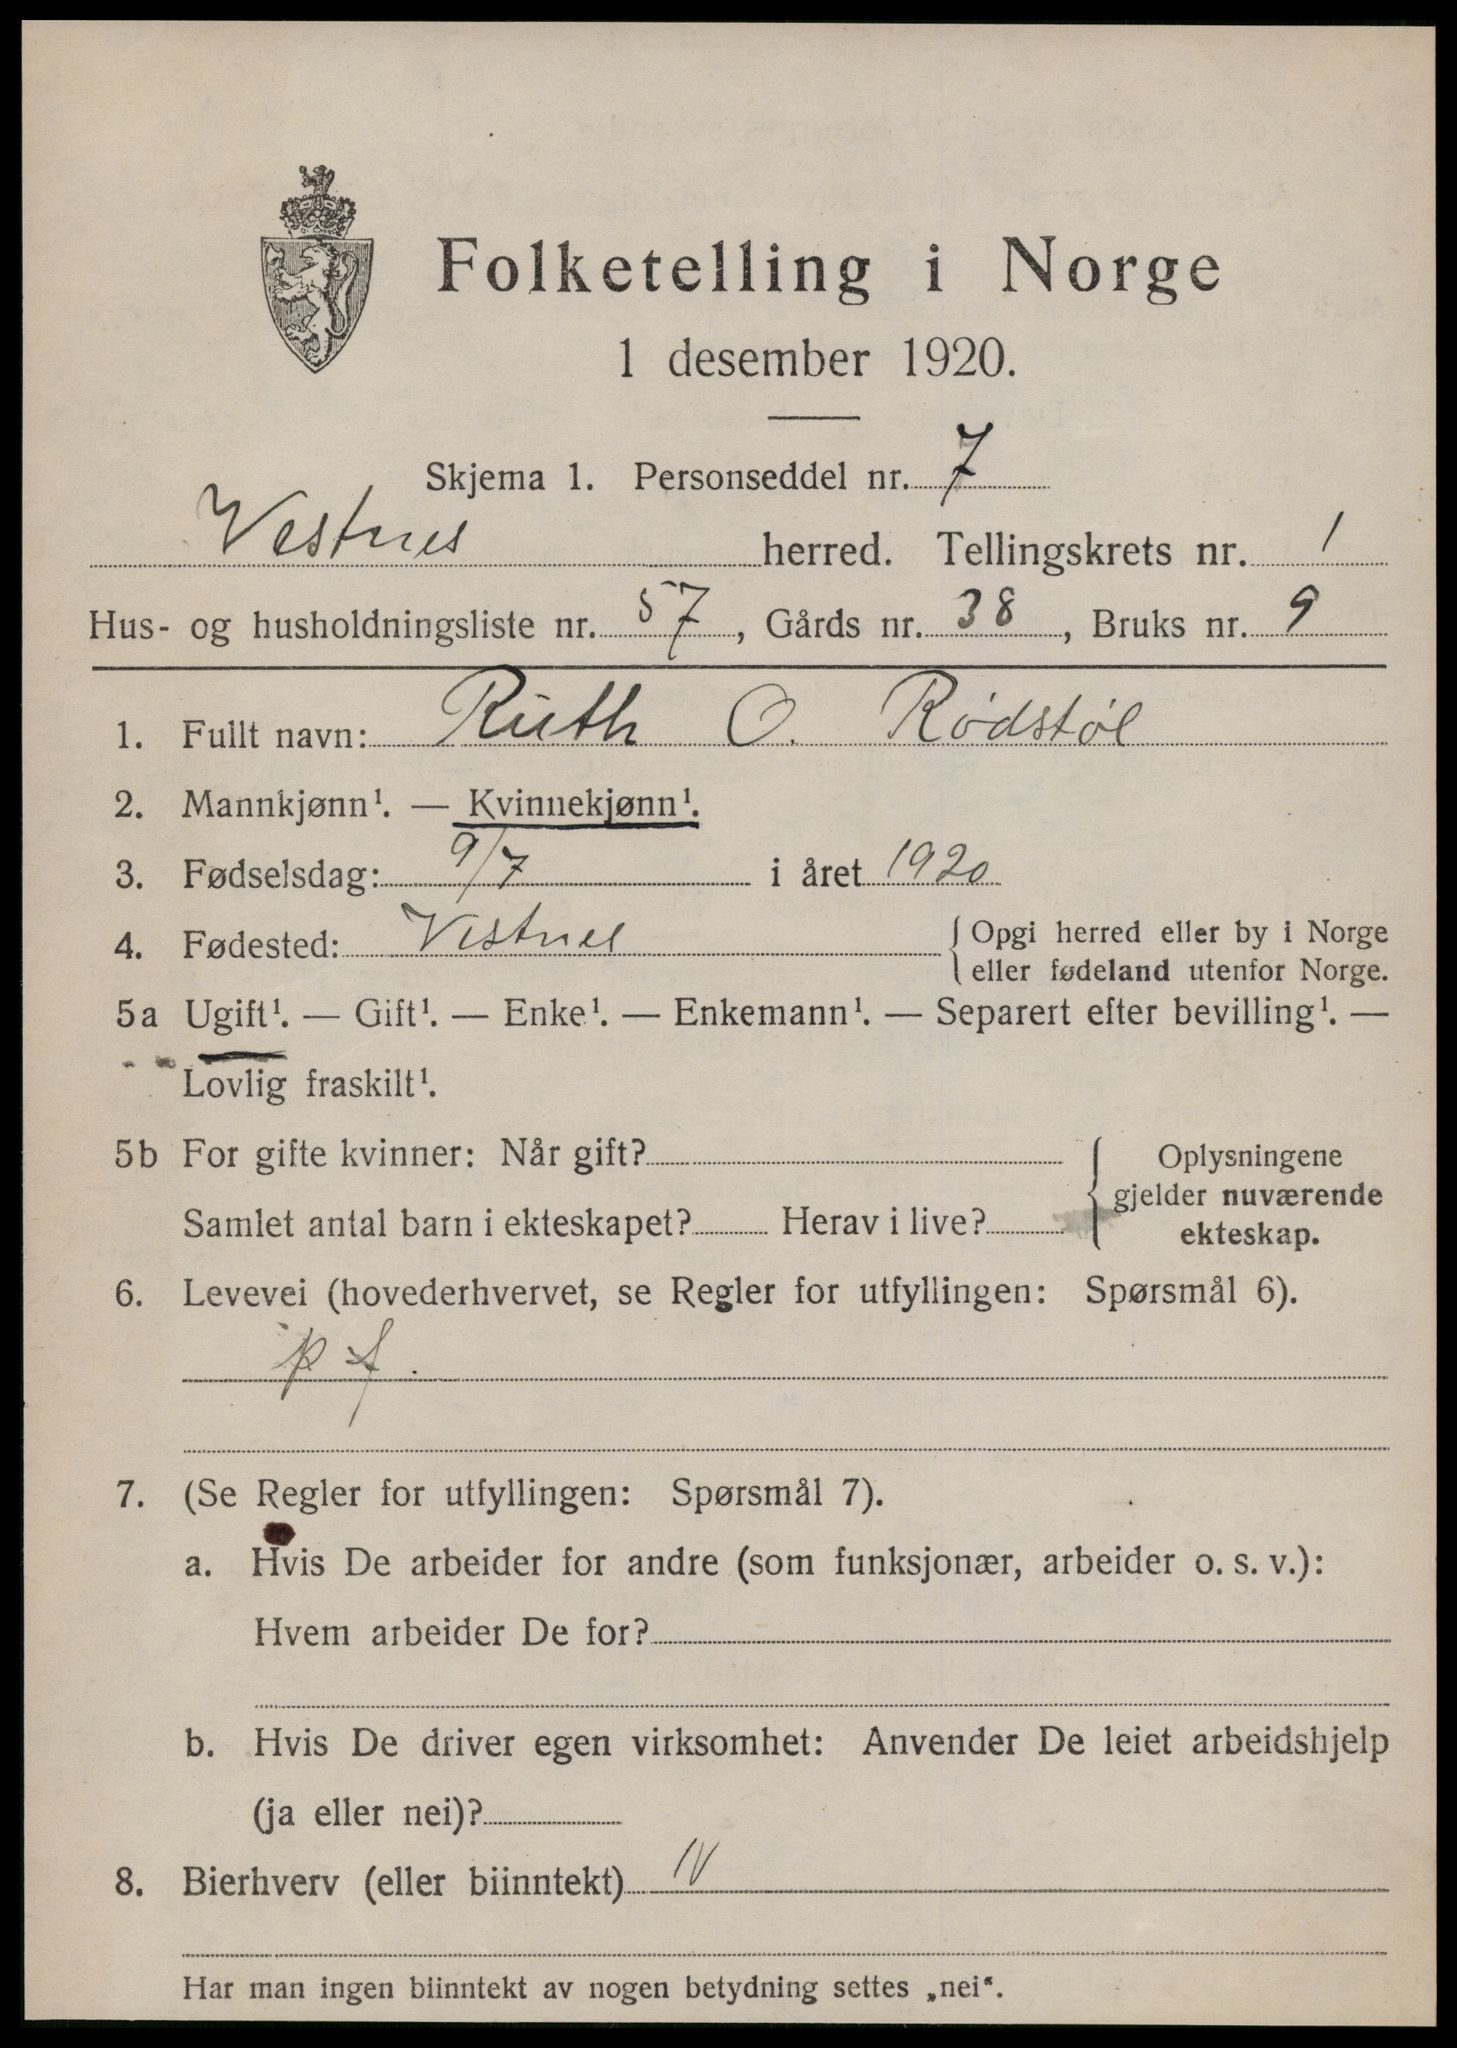 Folketelling i Norge
1 desember 1920.
Skjema 1. Personseddel nr. 7
Vestnes herred. Tellingskrets nr. 1
Hus- og husholdningsliste nr. 57, Gårds nr. 38, Bruks nr. 9
1. Fullt navn: Ruth O. Rødstøl
2. Mannkjønn¹. — Kvinnekjønn¹.
3. Fødselsdag: 9/7 i året 1920
4. Fødested: Vestnes { Opgi herred eller by i Norge
eller fødeland utenfor Norge.
5a Ugift¹. — Gift¹. — Enke¹. — Enkemann¹. — Separert efter bevilling¹. —
Lovlig fraskilt¹.
5b For gifte kvinner: Når gift? { Oplysningene
gjelder nuværende
Samlet antal barn i ekteskapet? Herav i live?
ekteskap.
6. Levevei (hovederhvervet, se Regler for utfyllingen: Spørsmål 6).
p f.
7. (Se Regler for utfyllingen: Spørsmål 7).
a. Hvis De arbeider for andre (som funksjonær, arbeider o. s. v.):
Hvem arbeider De for?
b. Hvis De driver egen virksomhet: Anvender De leiet arbeidshjelp
(ja eller nei)?
8. Bierhverv (eller biinntekt) IV
Har man ingen biinntekt av nogen betydning settes „nei“.